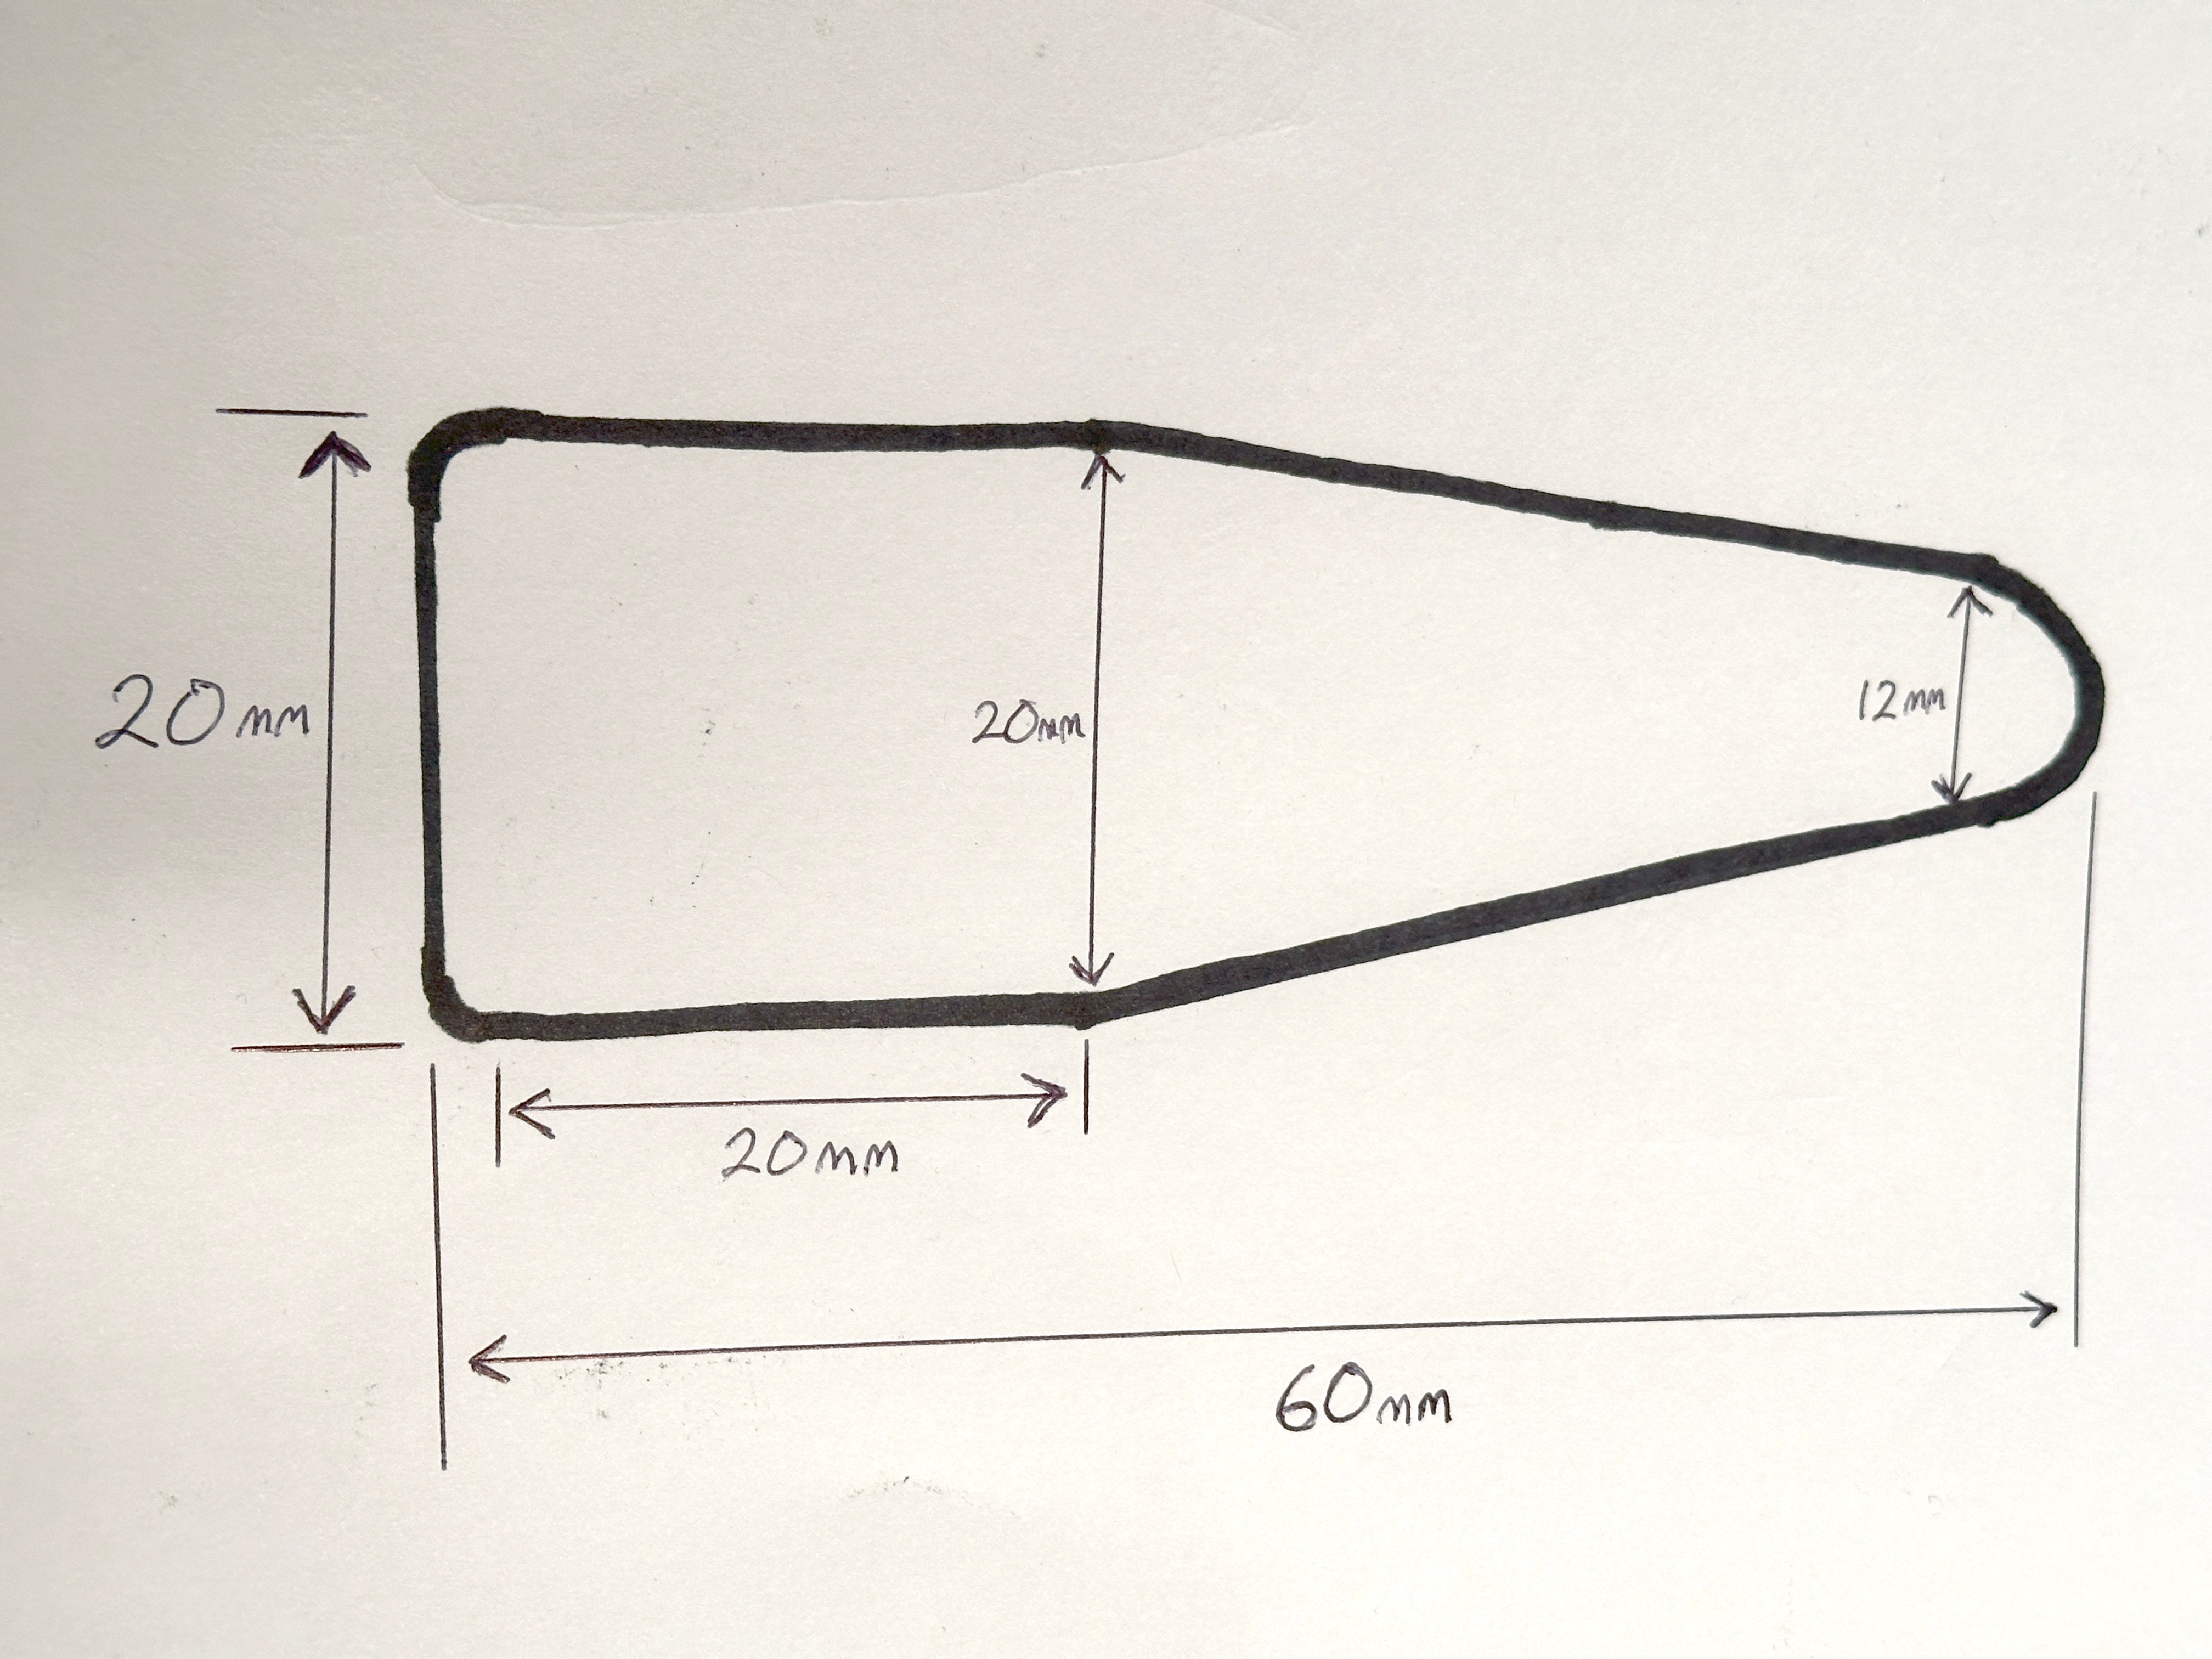 20mm
20mm
12mm
20mm
60mm